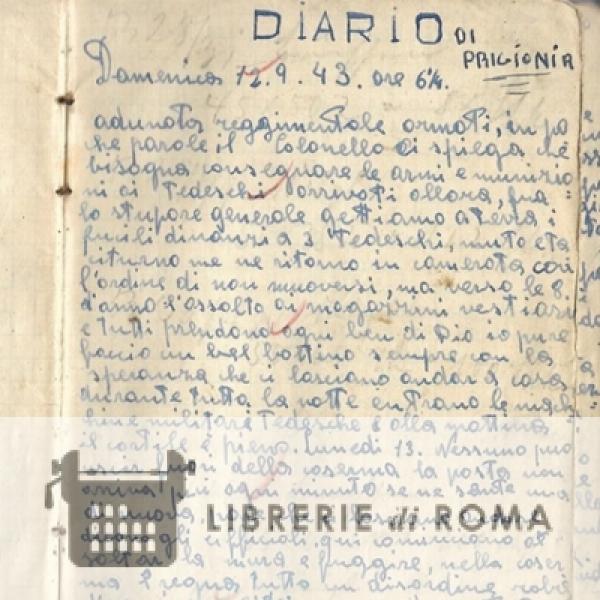 DIARIO DI
PRIGIONIA
Domenica 12.9.43. ore 6¼.
adunata reggimentale armati, in po
che parole il Colonello ci spiega che
bisogna consegnare le armi e munizio
ni ai Tedeschi arrivati allora, fra
lo stupore generale gettiamo a terra i
fucili dinanzi a 3 Tedeschi, muto e ta
citurno me ne ritorno in camerata con
l'ordine di non muoversi, ma verso le 8
danno l'assalto ai magazzini vestiari
e tutti prendono ogni ben di Dio io pure
faccio un bel bottino sempre con la
speranza che ci lasciano andar a casa
durante tutta la notte entrano le macc
hine militari Tedesche e alla mattina
il cortile è pieno. Lunedi 13. Nessuno può
uscir fuori della caserma la posta non
arriva più ogni minuto se ne sente una
di nuova,
gli ufficiali, qui cominciano a
saltar la mura e fuggire, nella caser
ma regna tutto un disordine
LIBRERIE di ROMA